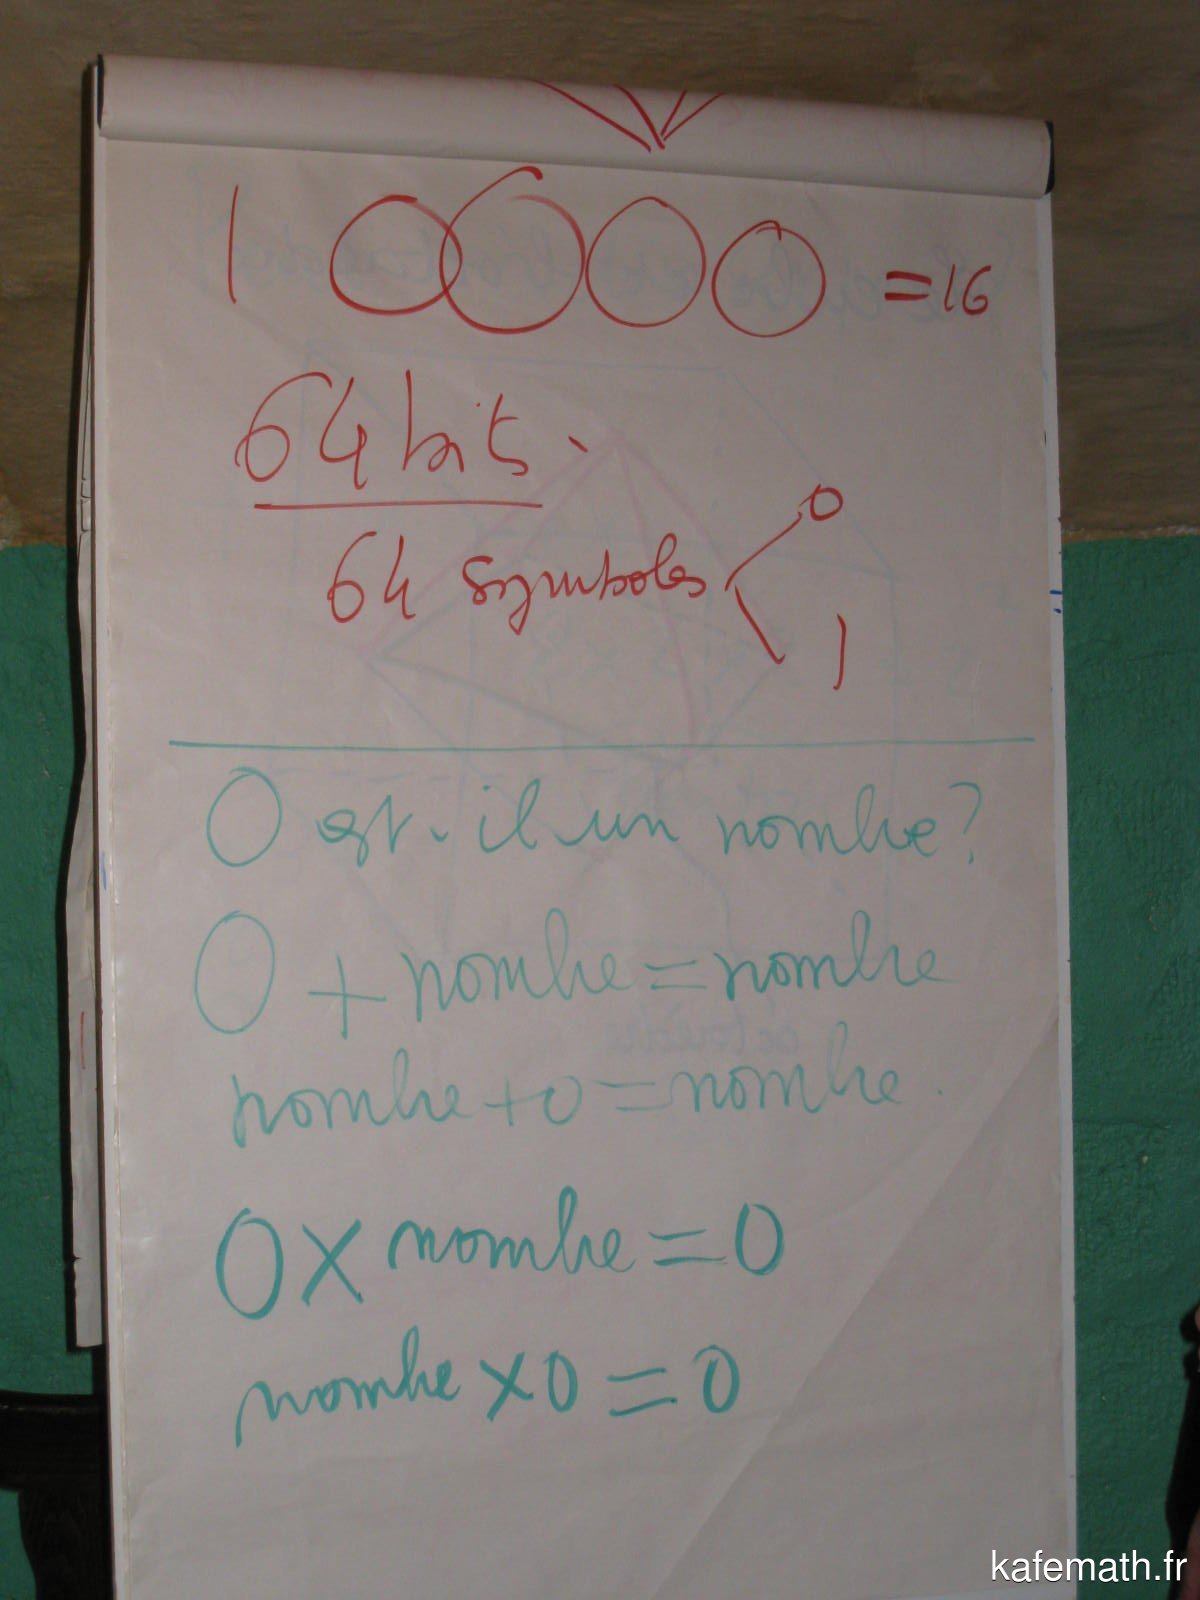 1 0000 = 16
64 bits
64 symboles
0
1
0 est-il un nombre ?
0 + nombre = nombre
nombre + 0 = nombre.
0 × nombre = 0
nombre × 0 = 0
kafemath.fr